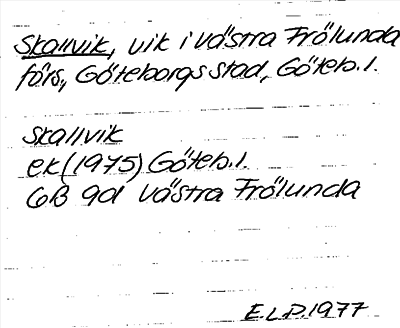 Skallvik, vik i Västra Frölunda
förs., Göteborgs stad, Göteb. l.
Skallvik
ek (1975) Göteb. l.
6B 9d Västra Frölunda
E.L.P. 1977